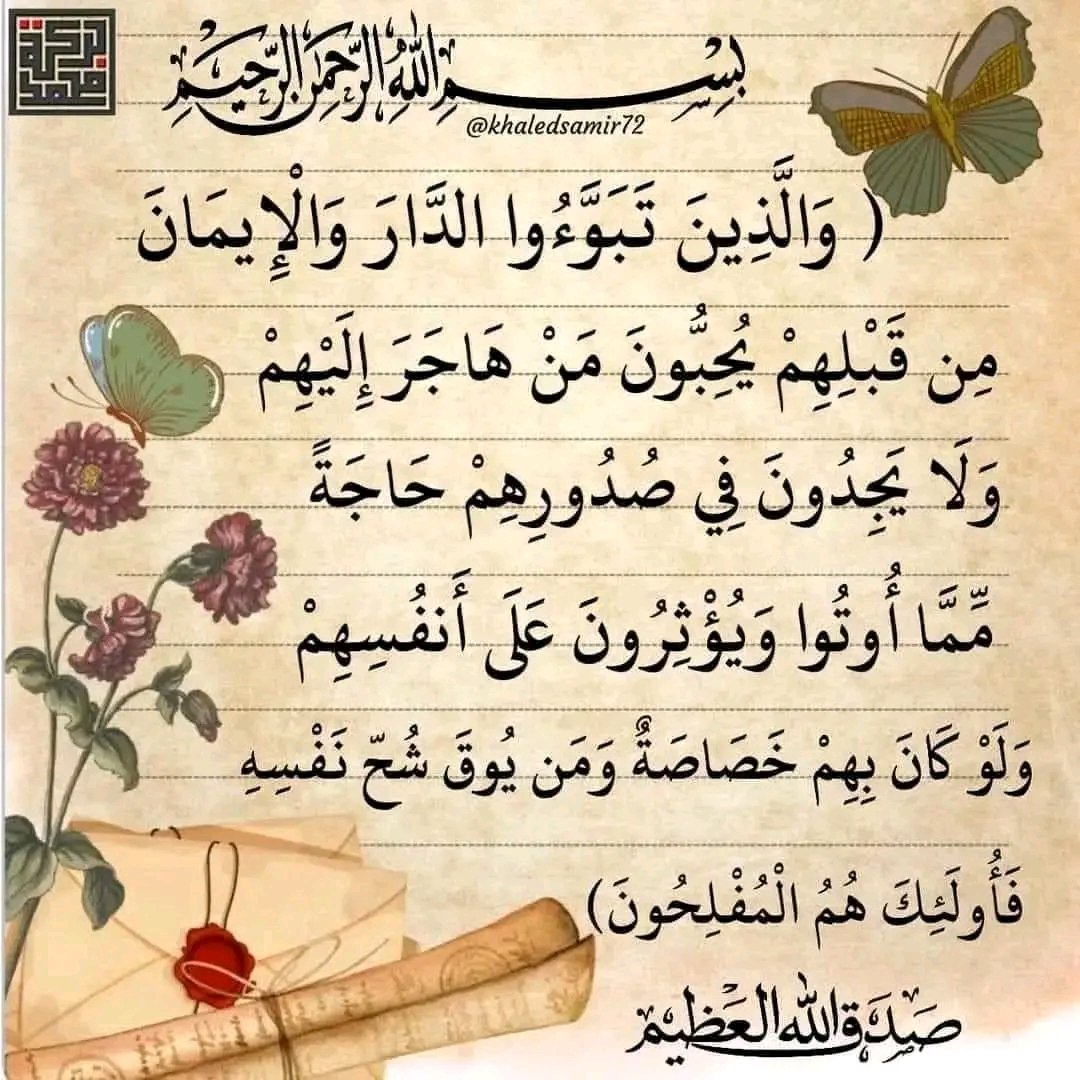 بركة
محمد
بِسْمِ اللهِ الرَّحْمَنِ الرَّحِيمِ
@khaledsamir72
( وَالَّذِينَ تَبَوَّءُوا الدَّارَ وَالْإِيمَانَ
مِن قَبْلِهِمْ يُحِبُّونَ مَنْ هَاجَرَ إِلَيْهِمْ
وَلَا يَجِدُونَ فِي صُدُورِهِمْ حَاجَةً
مِّمَّا أُوتُوا وَيُؤْثِرُونَ عَلَى أَنفُسِهِمْ
وَلَوْ كَانَ بِهِمْ خَصَاصَةٌ وَمَن يُوقَ شُحّ نَفْسِهِ
فَأُولَئِكَ هُمُ الْمُفْلِحُونَ)
صَدَقَ اللهُ العَظِيم